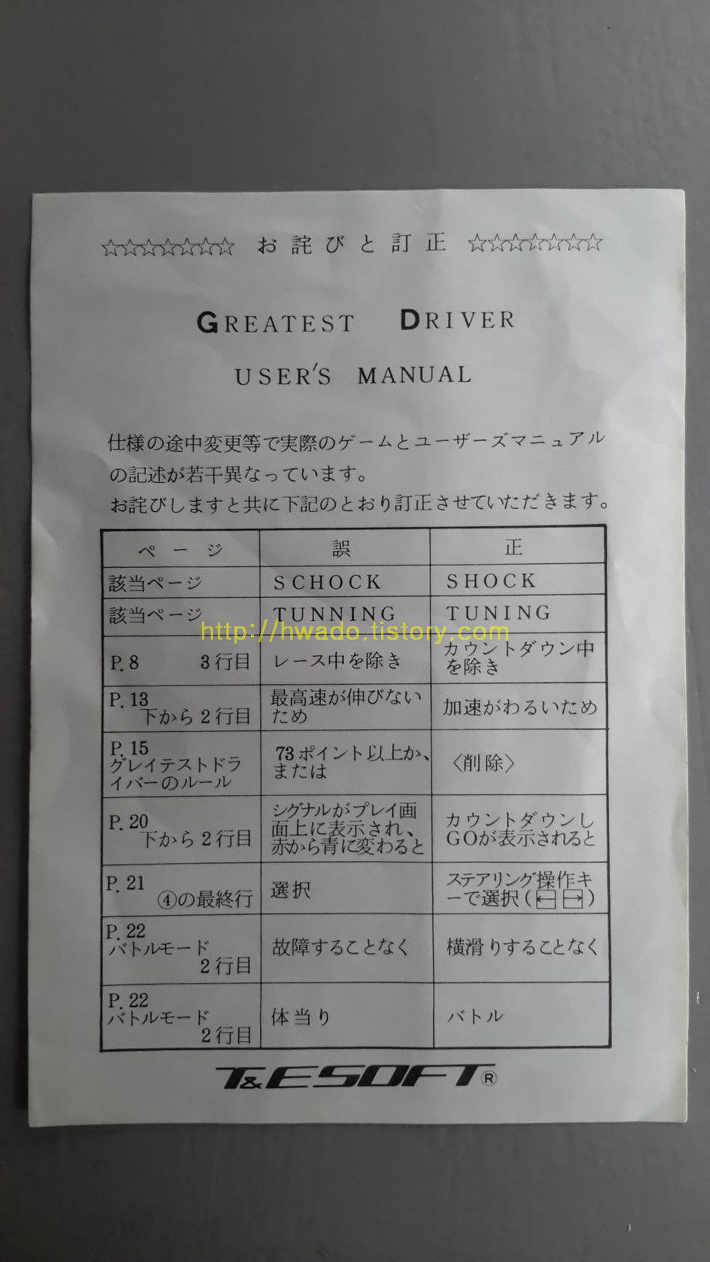 ☆☆☆☆☆☆☆ お詫びと訂正 ☆☆☆☆☆☆☆
GREATEST DRIVER
USER'S MANUAL
仕様の途中変更等で実際のゲームとユーザーズマニュアル
の記述が若干異なっています。
お詫びしますと共に下記のとおり訂正させていただきます。
ページ 誤 正
該当ページ SCHOCK SHOCK
該当ページ TUNNING TUNING
http://hwado.tistory.com
P.8 3行目 レース中を除き カウントダウン中
を除き
P.13 最高速が伸びない
下から2行目 ため 加速がわるいため
P.15
グレイテストドラ
イバーのルール 73ポイント以上か、
または 〈削除〉
P.20
下から2行目 シグナルがプレイ画
面上に表示され、
赤から青に変わると カウントダウンし
GOが表示されると
P.21
④の最終行 選択 ステアリング操作キ
ーで選択(← →)
P.22
バトルモード
2行目 故障することなく 横滑りすることなく
P.22
バトルモード
2行目 体当り バトル
T&ESOFT®